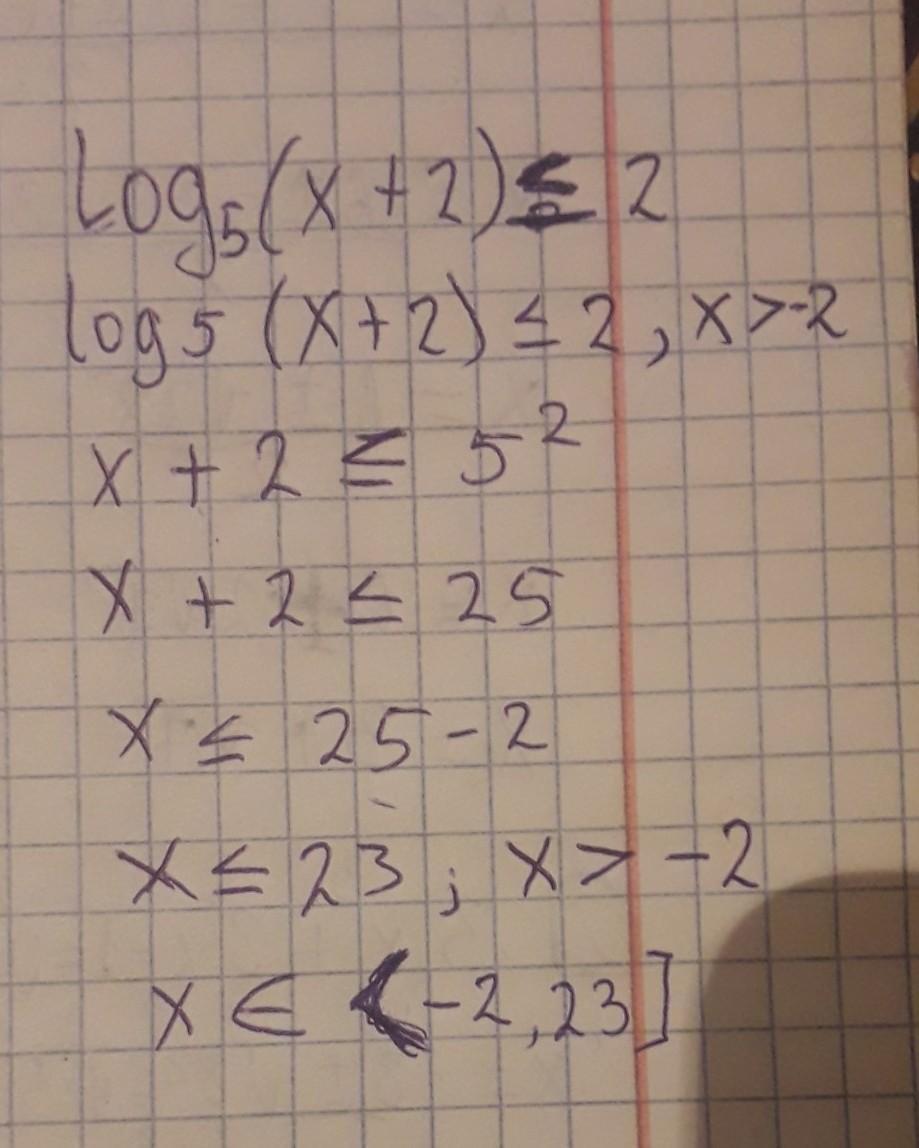 Log₅(x + 2) ≤ 2
log5 (x+2) ≤ 2, x >-2
x + 2 ≤ 5²
x + 2 ≤ 25
x ≤ 25 - 2
x ≤ 23; x > -2
x ∈ (-2,23]